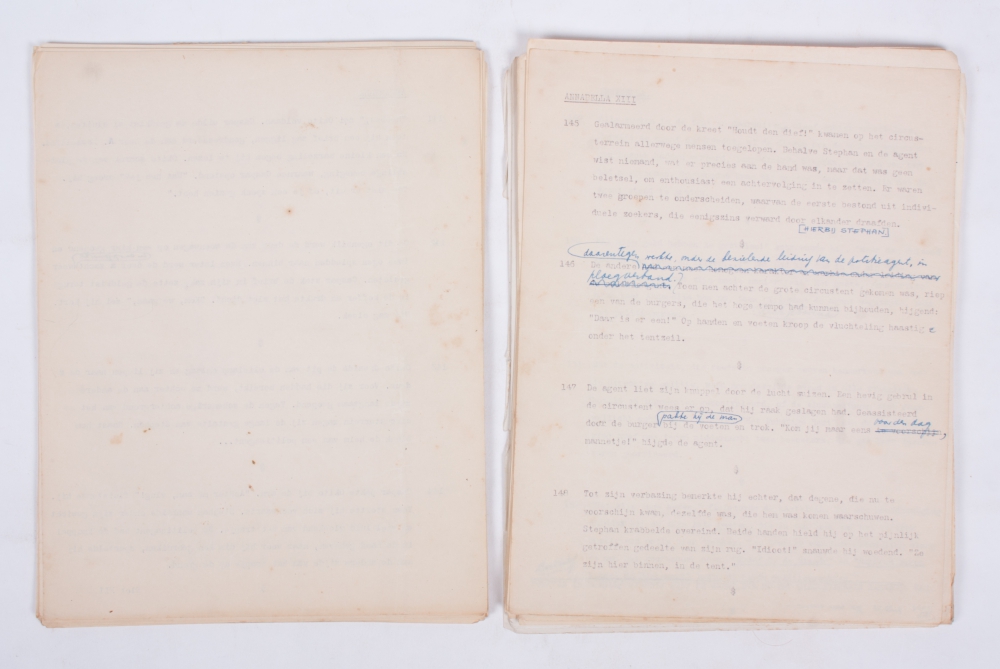 ANNABELLA XIII
145 Gealarmeerd door de kreet "Houdt den dief!" kwamen op het circus-
terrein allerwege mensen toegelopen. Behalve Stephan en de agent
wist niemand, wat er precies aan de hand was, maar dat was geen
beletsel, om enthousiast een achtervolging in te zetten. Er waren
twee groepen te onderscheiden, waarvan de eerste bestond uit indivi-
duele zoekers, die eenigszins verward door elkander draafden.
HIERBIJ STEPHAN
daarentegen werkte, onder de bezielende leiding van de politieagent, in
146 De andere
ploegverband. Toen men achter de grote circustent gekomen was, riep
een van de burgers, die het hoge tempo had kunnen bijhouden, hijgend:
"Daar is er een!" Op handen en voeten kroop de vluchteling haastig
onder het tentzeil.
147 De agent liet zijn knuppel door de lucht suizen. Een hevig gebrul in
de circustent wees er op, dat hij raak geslagen had. Geassisteerd
pakte hij de man
voor den dag
door de burger bij de voeten en trok. "Kom jij maar eens ,
mannetje!" hijgde de agent.
148 Tot zijn verbazing bemerkte hij echter, dat degene, die nu te
voorschijn kwam, dezelfde was, die hen was komen waarschuwen.
Stephan krabbelde overeind. Beide handen hield hij op het pijnlijk
getroffen gedeelte van zijn rug. "Idioot!" snauwde hij woedend. "Ze
zijn hier binnen, in de tent."